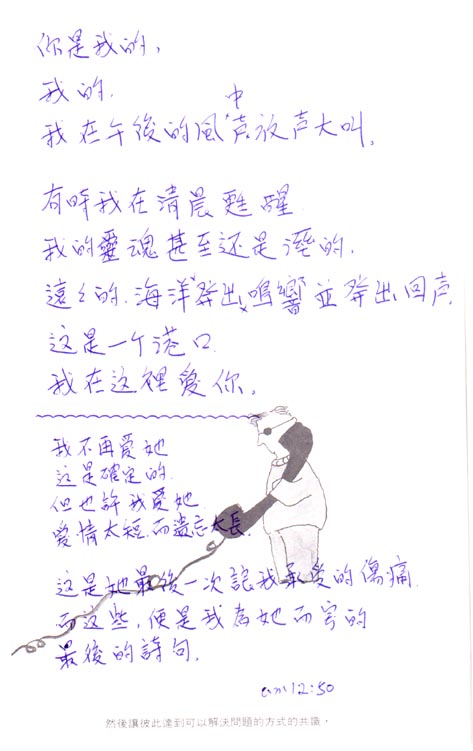 你是我的,
我的.
我在午後的風声中放声大叫。
有時我在清晨甦醒
我的靈魂甚至还是溼的.
遠々的.海洋發出鳴響並發出回声.
这是一个港口
我在这裡愛你。
我不再愛她
这是確定的
但也許我愛她
愛情太短,而遺忘太長.
这是她最後一次讓我承受的傷痛
而这些,便是我為她而寫的
最後的詩句.
am12:50
然後讓彼此達到可以解決問題的方式的共識。